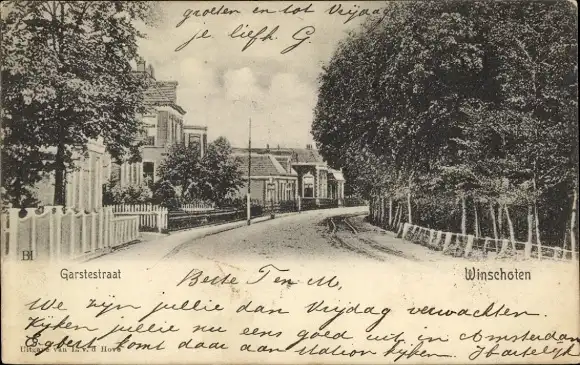 groeten en tot Vrijdag
je liefh. G.
BH
Garstestraat
Winschoten
Beste T en M.
We zijn jullie dan Vrijdag verwachten.
Kijken jullie nu eens goed uit in Amsterdam
Egbert komt daar aan station kijken. Hartelijk
Uitgave van L. v. d. Hove